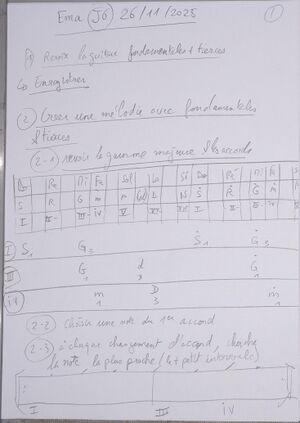 Ema J6 26/11/2025 ①
① Revoir la guitare fondamentales + tierces
↳ Enregistrer
② Créer une mélodie avec fondamentales
& Tierces
2-1 revoir la gamme majeure & les accords
Do Ré Mi Fa Sol La Si Do Ré Mi Fa
S R G m D N Ṡ Ṙ Ġ ṁ
I II- III- IV V VI I II- III- IV
I S G Ṡ Ġ
1 3 1 3
III G d Ġ
1 1
IV m D ṁ
1 3 1
2-2 Choisir une note du 1er accord
2-3 à chaque changement d'accord, chercher
la note la plus proche (le + petit intervalle)
I III IV